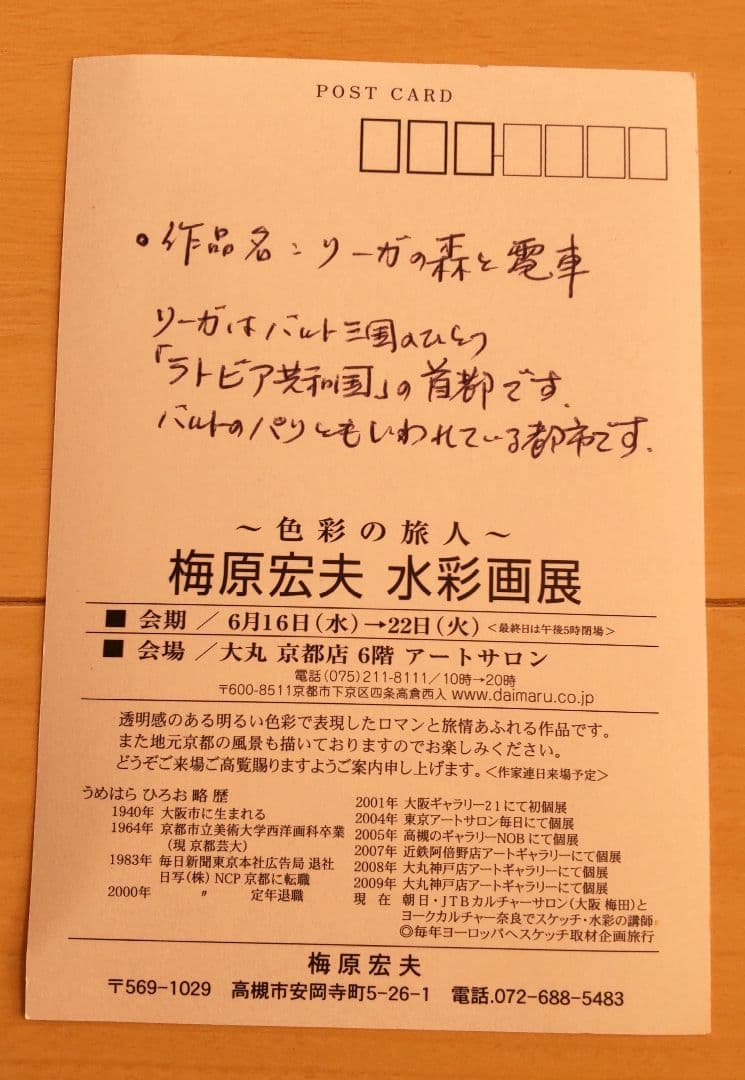 POST CARD
• 作品名：リーガの森と電車
リーガはバルト三国のひとつ
「ラトビア共和国」の首都です.
バルトのパリともいわれている都市です.
～色彩の旅人～
梅原宏夫 水彩画展
■ 会期 ／ 6月16日(水)→22日(火) <最終日は午後5時閉場>
■ 会場 ／大丸 京都店 6階 アートサロン
電話(075)211-8111／10時→20時
〒600-8511京都市下京区四条高倉西入 www.daimaru.co.jp
透明感のある明るい色彩で表現したロマンと旅情あふれる作品です。
また地元京都の風景も描いておりますのでお楽しみください。
どうぞご来場ご高覧賜りますようご案内申し上げます。<作家連日来場予定>
うめはら ひろお 略 歴
1940年 大阪市に生まれる
1964年 京都市立美術大学西洋画科卒業
(現 京都芸大)
1983年 毎日新聞東京本社広告局 退社
日写(株) NCP 京都に転職
2000年 〃 定年退職
2001年 大阪ギャラリー21にて初個展
2004年 東京アートサロン毎日にて個展
2005年 高槻のギャラリーNOBにて個展
2007年 近鉄阿倍野店アートギャラリーにて個展
2008年 大丸神戸店アートギャラリーにて個展
2009年 大丸神戸店アートギャラリーにて個展
現 在 朝日・JTBカルチャーサロン(大阪 梅田)と
ヨークカルチャー奈良でスケッチ・水彩の講師
◎毎年ヨーロッパへスケッチ取材企画旅行
梅原宏夫
〒569-1029 高槻市安岡寺町5-26-1 電話.072-688-5483